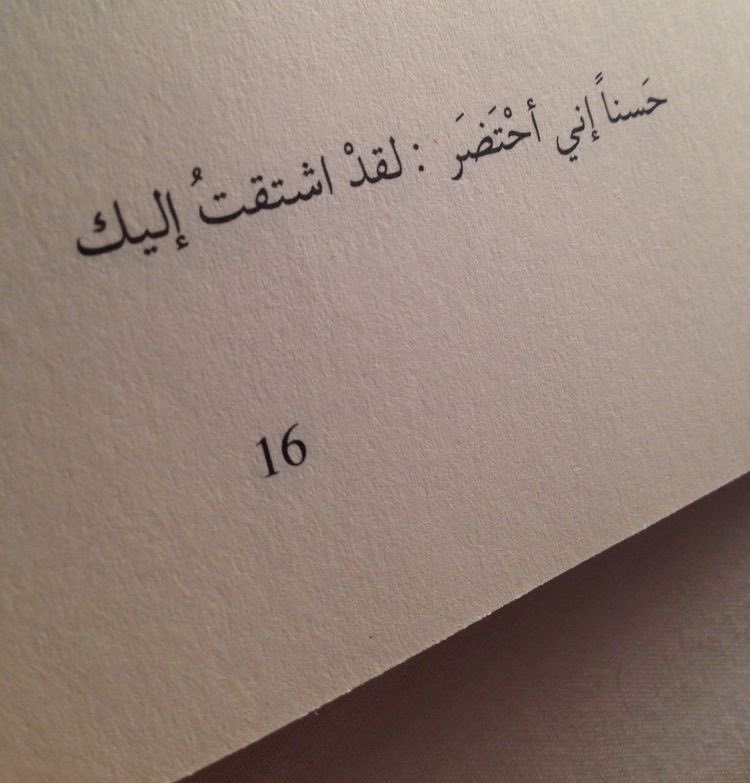 حَسناً إني أحْتَضرَ : لقدْ اشتقتُ إليك
16